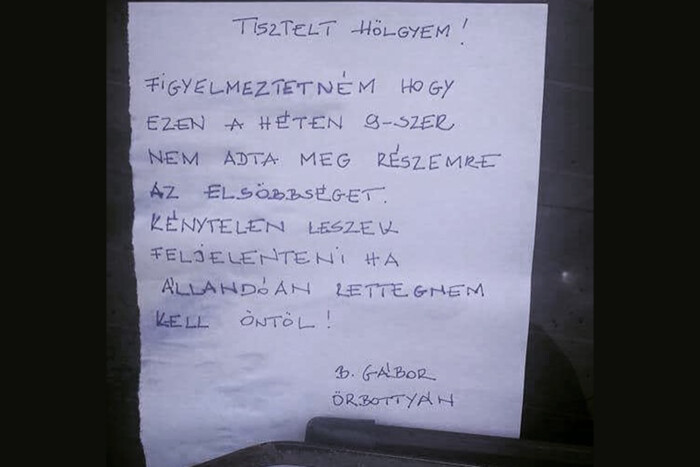 TISZTELT HÖLGYEM!
FIGYELMEZTETNÉM HOGY
EZEN A HÉTEN 9-SZER
NEM ADTA MEG RÉSZEMRE
AZ ELSÖBBSÉGET.
KÉNYTELEN LESZEK
FELJELENTENI HA
ÁLLANDÓÁN RETTEGNEM
KELL ÖNTÖL!
B. GÁBOR
ÖRBOTTYÁN